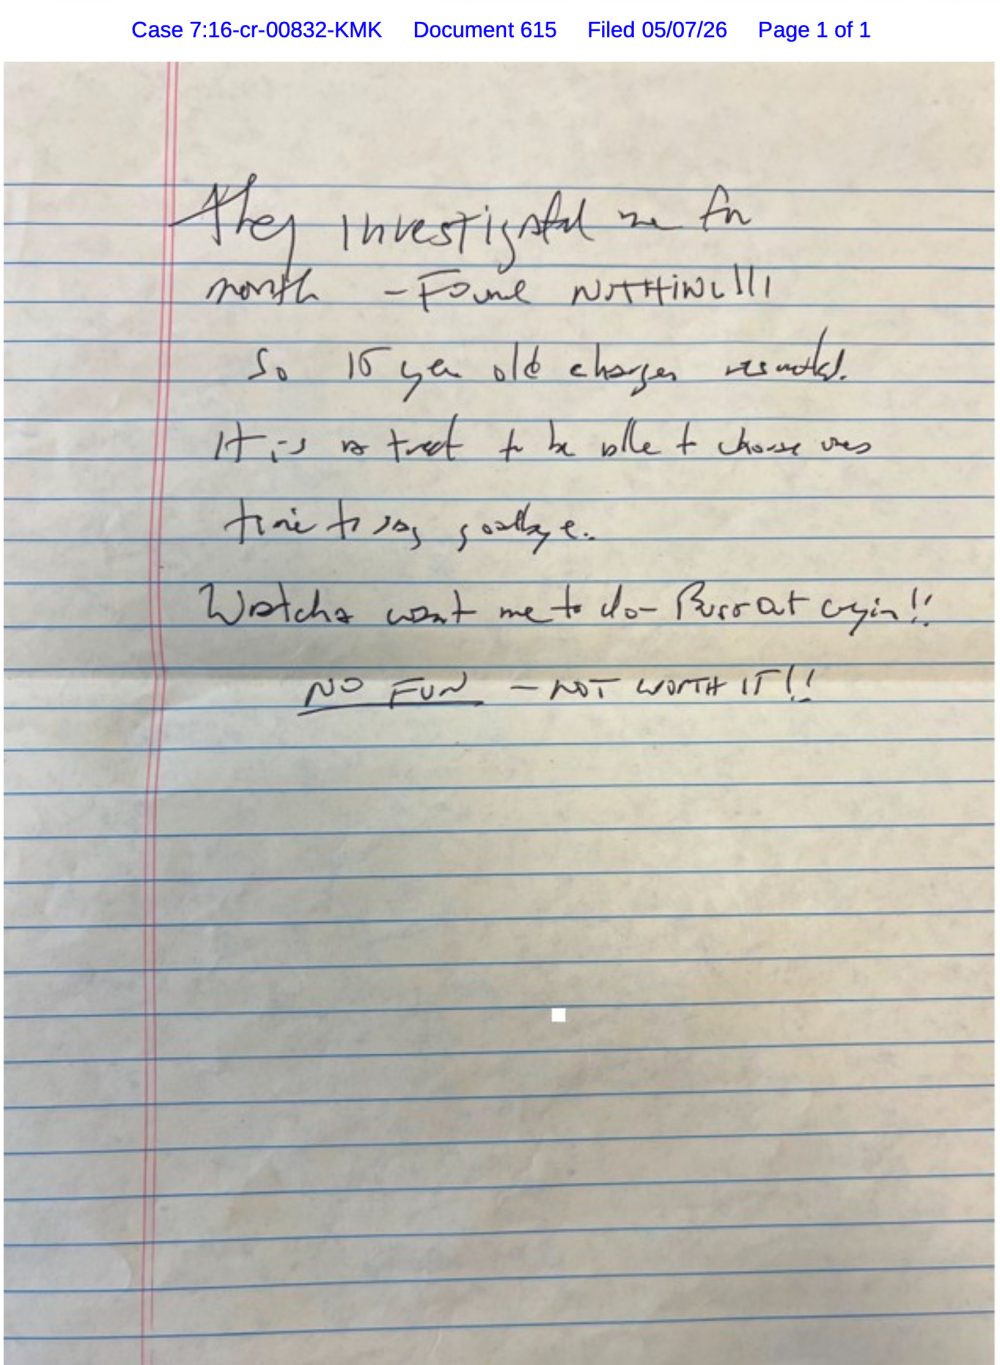 Case 7:16-cr-00832-KMK Document 615 Filed 05/07/26 Page 1 of 1
They investigated me for
month - Found NOTHING!!!
So 15 year old charges
It is a treat to be able to choose
time to say goodbye.
Watcha want me to do - Bust out cryin!!
NO FUN - NOT WORTH IT!!